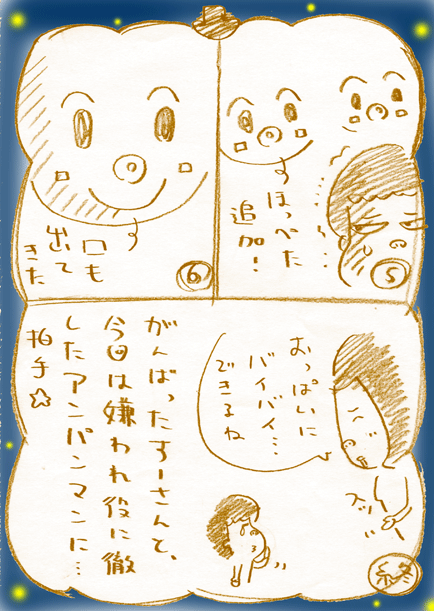 ほっぺた
追加！
5
口も
出て
きた
6
おっぱいに
バイバイ…
できるね
スッ
がんばったすーさんと、
今回は嫌われ役に徹
したアンパンマンに…
拍手☆
終